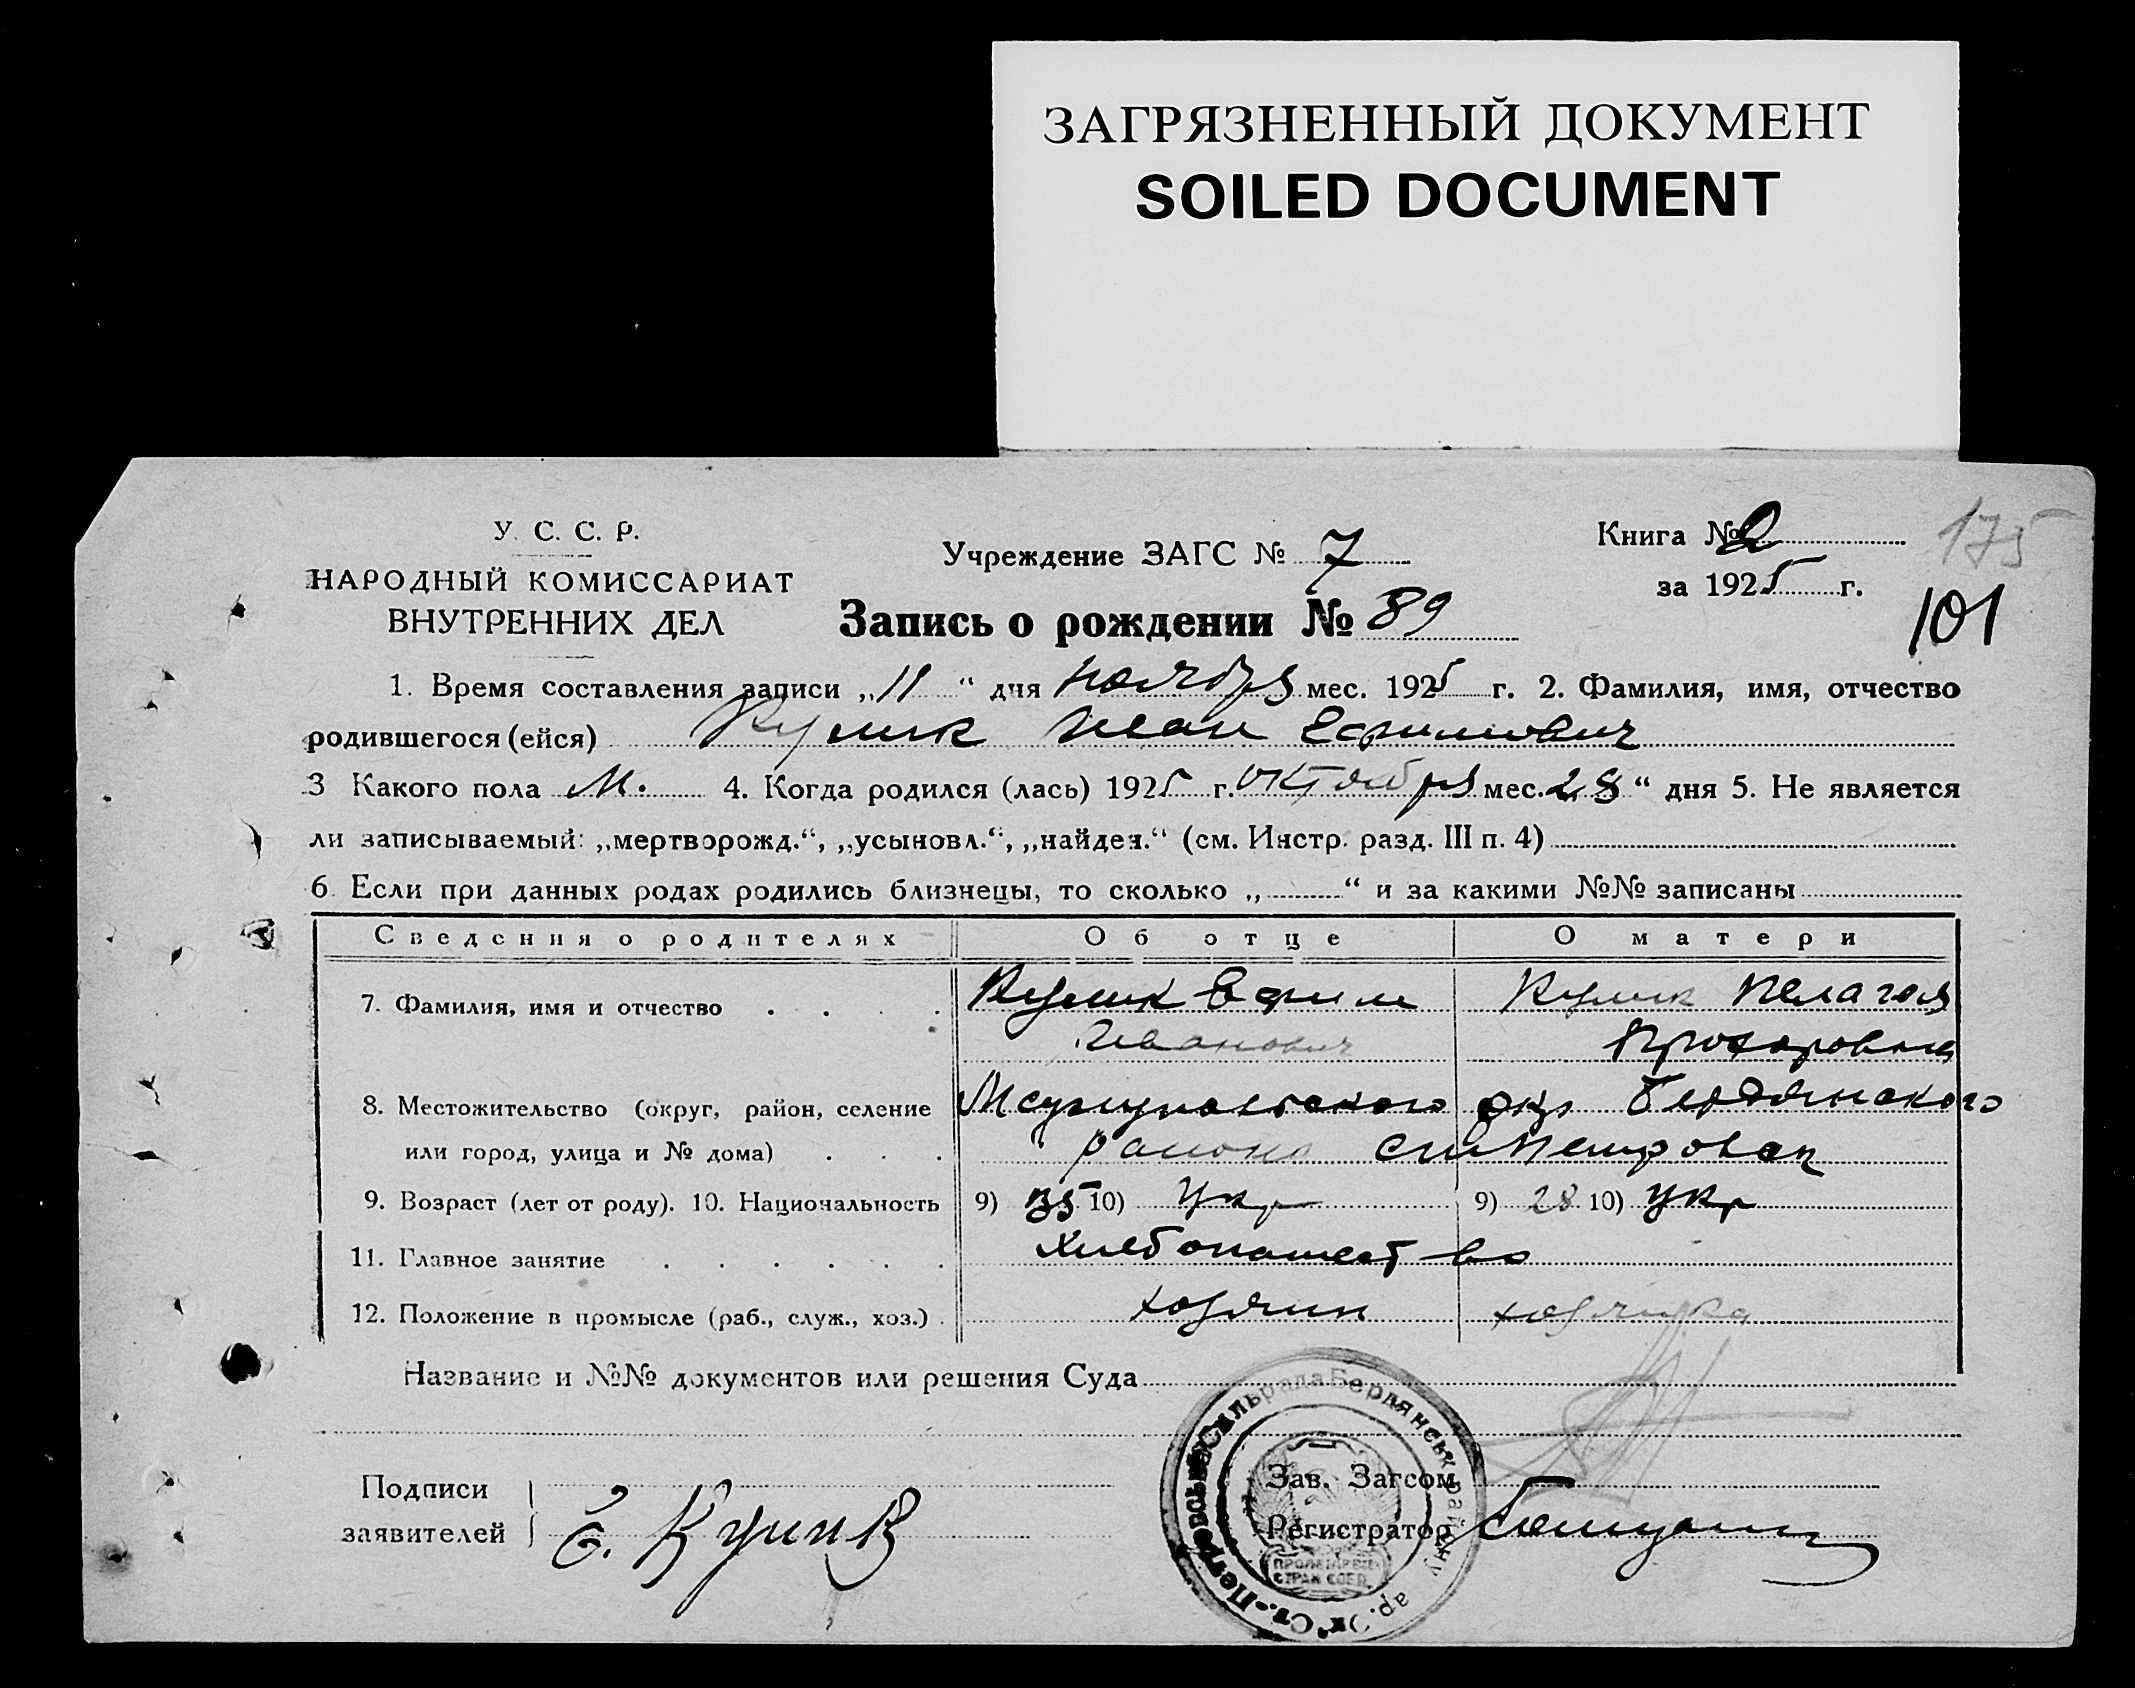 ЗАГРЯЗНЕННЫЙ ДОКУМЕНТ
SOILED DOCUMENT
У. С. С. Р.
НАРОДНЫЙ КОМИССАРИАТ
ВНУТРЕННИХ ДЕЛ
Учреждение ЗАГС № 7
Книга № 2
за 1925 г.
175
101
Запись о рождении № 89
1. Время составления записи „11“ дня ноября мес. 1925 г. 2. Фамилия, имя, отчество
родившегося (ейся) Кулик Иван Ефимович
3 Какого пола М. 4. Когда родился (лась) 1925 г. октября мес. 28“ дня 5. Не является
ли записываемый: „мертворожд.“, „усыновл.“, „найден.“ (см. Инстр. разд. III п. 4)
6. Если при данных родах родились близнецы, то сколько „ “ и за какими №№ записаны
Сведения о родителях Об отце О матери
7. Фамилия, имя и отчество Кулик Ефим Кулик Пелагея
Иванович Прохоровна
8. Местожительство (округ, район, селение Мариупольского окр Бердянского
или город, улица и № дома) района Петровец
9. Возраст (лет от роду). 10. Национальность 9) 35 10) Укр 9) 28 10) Укр
11. Главное занятие хлебопашество
12. Положение в промысле (раб., служ., хоз.) хозяин хозяйка
Название и №№ документов или решения Суда
Подписи
заявителей Е. Кулик
Зав. Загсом
Регистратор
Ст.-Петровська Сільрада Бердянськ району
ПРОЛЕТАРІ